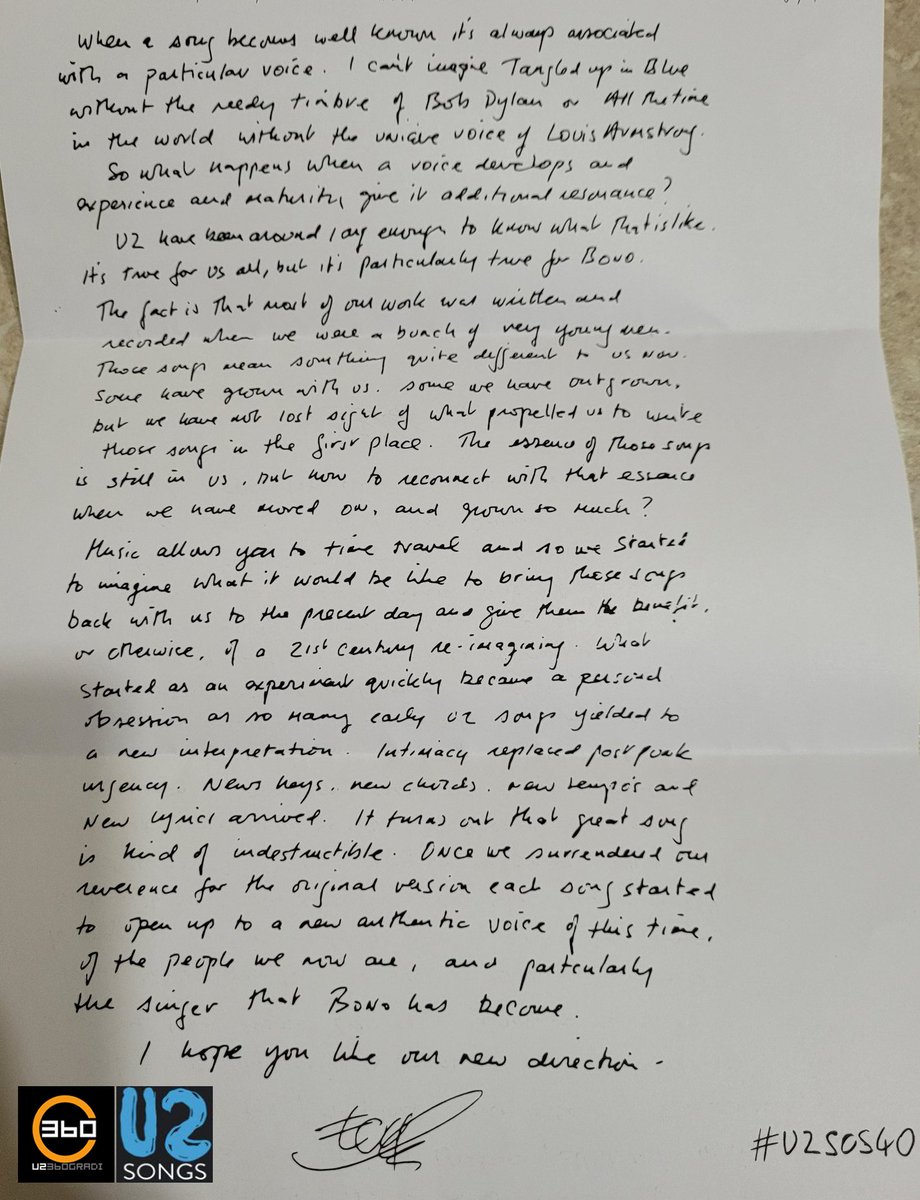 When a song becomes well known it's always associated
with a particular voice. I can't imagine Tangled up in Blue
without the reedy timbre of Bob Dylan or All the time
in the world without the unique voice of Louis Armstrong.
So what happens when a voice develops and
experience and maturity, give it additional resonance?
U2 have been around long enough to know what that is like.
It's true for us all, but it's particularly true for Bono.
The fact is that most of our work was written and
recorded when we were a bunch of very young men.
Those songs mean something quite different to us now.
Some have grown with us. some we have outgrown,
but we have not lost sight of what propelled us to write
those songs in the first place. The essence of those songs
is still in us, but how to reconnect with that essence
when we have moved on, and grown so much?
Music allows you to time travel and so we started
to imagine what it would be like to bring these songs
back with us to the present day and give them the benefit,
or otherwise, of a 21st century re-imagining. What
started as an experiment quickly became a personal
obsession as so many early U2 songs yielded to
a new interpretation. Intimacy replaced post punk
urgency. News keys. new chords. new tempo's and
New lyrics arrived. It turns out that great song
is kind of indestructible. Once we surrendered our
reverence for the original version each song started
to open up to a new authentic voice of this time,
of the people we now are, and particularly
the singer that Bono has become.
I hope you like our new direction -
360
U2360GRADI
U2
SONGS
#U2SOS40